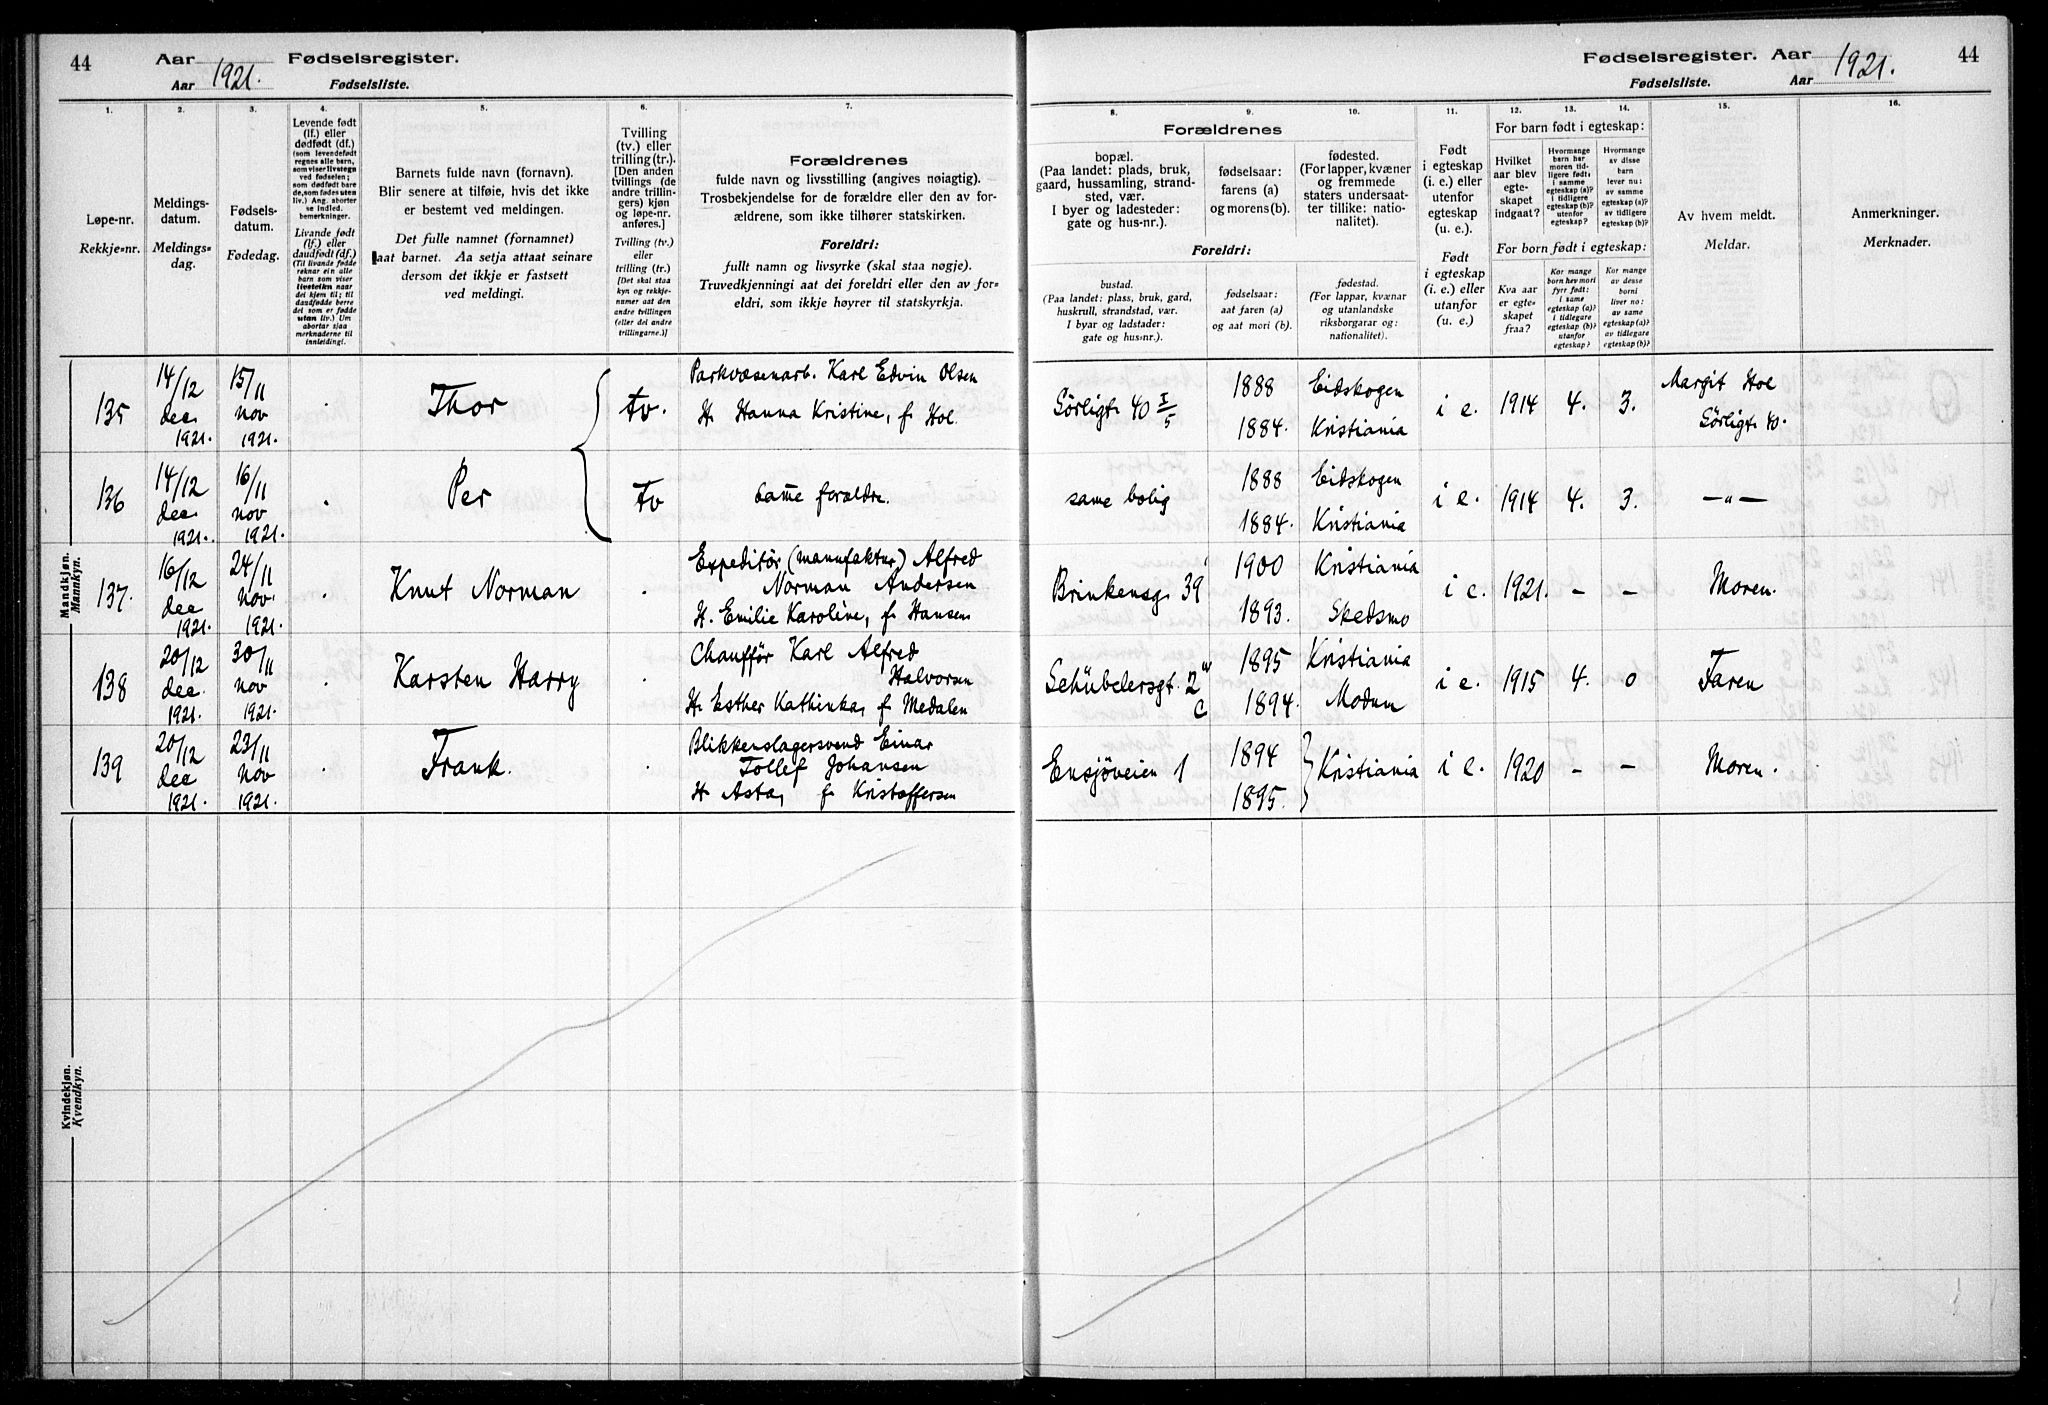 44
Aar 1921. Fødselsregister.
Aar Fødselsliste.
1.
Løpe-nr.
Rekkje=nr.
2.
Meldings-
datum.
Meldings=
dag.
3.
Fødsels-
datum.
Fødedag.
4.
Levende født
(lf.) eller
dødfødt (df.)
(som levendefødt
regnes alle barn,
som viser livstegn
ved fødselen;
som dødfødt bare
de, som fødes uten
liv.) Ang. aborter
se indled.
bemerkninger.
Livande født
(lf.) eller
daudfødt (df.)
(Til livande fødde
reknar ein alle
barn som viser
livsteikn naar
dei kjem til; til
daudfødde berre
dei som er fødde
utan liv.) Um
abortar sjaa
merknaderne til
innleiding!.
5.
Barnets fulde navn (fornavn).
Blir senere at tilføie, hvis det ikke
er bestemt ved meldingen.
Det fulle namnet (fornamnet)
aat barnet. Aa setja attaat seinare
dersom det ikkje er fastsett
ved meldingi.
6.
Tvilling
(tv.) eller
trilling (tr.).
[Den anden
tvillings (de
andre trillin-
gers) kjøn
og løpe-nr.
anføres.]
Tvilling (tv.)
eller
trilling (tr.)
[Det skal staa
kyn og rekkje-
numer aat den
andre tvillingen
(eller dei andre
trillingarne.)]
7.
Forældrenes
fulde navn og livsstilling (angives nøiagtig).
Trosbekjendelse for de forældre eller den av for-
ældrene, som ikke tilhører statskirken.
Foreldri:
fullt namn og livsyrke (skal staa nøgje).
Truvedkjenningi aat dei foreldri eller den av for=
eldri, som ikkje høyrer til statskyrkja.
Mandkjøn.
Mannkyn.
135
14/12
dec.
1921.
15/11
nov
1921.
Thor
tv.
Parkvæsenarb. Karl Edvin Olsen
H. Hanna Kristine, f. Hol.
136
14/12
dec.
1921.
16/11
nov
1921.
Per
tv
Samme forældre.
137.
16/12
dec
1921.
24/11
nov.
1921.
Knut Norman
Expeditør (manufaktur) Alfred
Norman Andersen
H. Emilie Karoline, f. Hansen
138
20/12
dec.
1921.
30/11
nov
1921.
Karsten Harry
Chauffør Karl Alfred
Halvorsen
H. Esther Kathinka, f. Medalen
139
20/12
dec
1921.
23/11
nov
1921.
Frank.
Blikkenslagersvend Einar
Tollef Johansen
H. Asta, f. Kristoffersen
Kvindekjøn.
Kvendkyn.
Fødselsregister. Aar 1921.
44
Fødselsliste. Aar
Forældrenes
8.
bopæl.
(Paa landet: plads, bruk,
gaard, hussamling, strand-
sted, vær.
I byer og ladesteder:
gate og hus-nr.).
9.
fødselsaar:
farens (a)
og morens (b).
10.
fødested.
(For lapper, kvæner
og fremmede
staters undersaat-
ter tillike: natio-
nalitet).
Foreldri:
bustad.
(Paa landet: plass, bruk, gard,
huskrull, strandstad, vær.
I byar og ladstader:
gate og hus=nr.).
fødselsaar:
aat faren (a)
og aat mori (b).
fødestad.
(For lappar, kvænar
og utanlandske
riksborgarar og:
nationalitet).
11.
Født
i egteskap
(i. e.) eller
utenfor
egteskap
(u. e.).
Født
i egteskap
(i. e.) eller
utanfor
(u. e.)
12.
13.
14.
For barn født i egteskap:
Hvilket
aar blev
egte-
skapet
indgaat?
Hvormange
barn har
moren tid-
ligere født:
i samme
egteskap (a)?
i tidligere
egteskap (b)?
utenfor
egteskap?
Hvormange
av disse
barn
lever nu:
av samme
egteskap (a)?
av tidligere
egteskap (b)?
For born født i egteskap:
Kva aar
er egte-
skapet
fraa?
Kor mange
born hev mori
fyrr født:
i same
egteskap (a)?
i tidlegare
egteskap (b)?
utanfor
egteskap?
Kor mange
av desse
borni
liver no:
av same
egteskap (a)?
av tidlegare
egteskap (b)?
15.
Av hvem meldt.
Meldar.
16.
Anmerkninger.
Merknader.
Sörligt. 40 I/5
1888
1884.
Eidskogen
Kristiania
i e.
1914
4.
3.
Margit Hol
Sörligt 40.
same bolig
1888
1884.
Eidskogen
Kristiania
i e.
1914
4.
3.
—"—
Brinkensg. 39
1900
1893.
Kristiania
Skedsmo
i e.
1921.
–
–
Moren.
Schübelersgt. 2
c
1895
1894.
Kristiania
Modum
i e.
1915
4.
0
Faren
Ensjöveien 1
1894
1895.
Kristiania
i e.
1920
–
–
Moren.